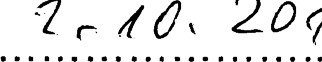 2. 10. 20